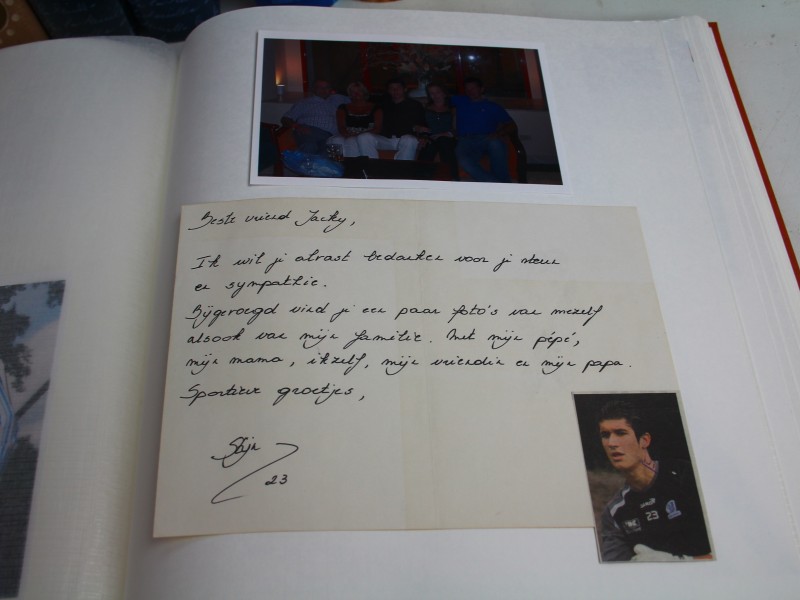 Beste vriend Jacky,
Ik wil je alvast bedanken voor je steun
en sympathie.
Bijgevoegd vind je een paar foto's van mezelf
alsook van mijn familie. Met mijn pépé,
mijn mama, ikzelf, mijn vriendin en mijn papa.
Sportieve groetjes,
Stijn
23
23